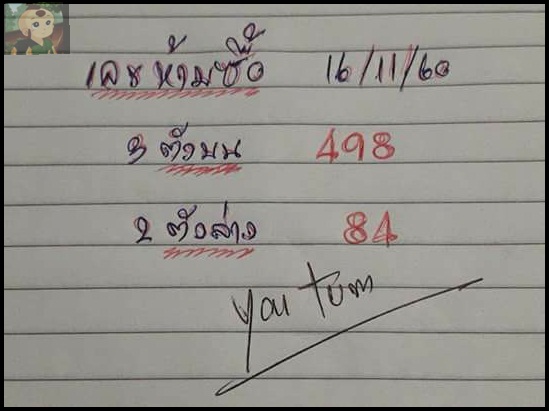 เลขห้ามซื้อ 16/11/60
3 ตัวบน 498
2 ตัวล่าง 84
you tum